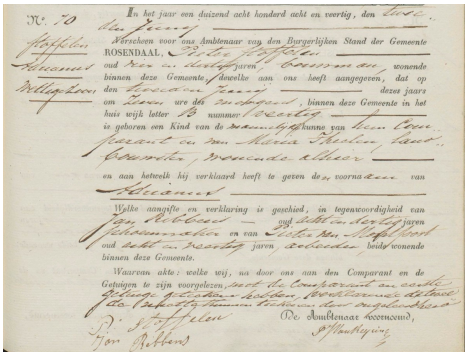 In het jaar een duizend acht honderd acht en veertig, den twee-
N.º 70
den Junij
Verscheen voor ons Ambtenaar van den Burgerlijken Stand der Gemeente
Stoffelen
ROSENDAAL, Pieter Stoffelen
Adrianus
oud vier en dertig jaren, bouwman, wonende
Wettige Zoon
binnen deze Gemeente, dewelke aan ons heeft aangegeven, dat op
den tweeden Junij dezes jaars
om zeven ure des morgens, binnen deze Gemeente in het
huis wijk letter B nummer veertig
is geboren een Kind van de mannelijke kunne van hem Com-
parant en van Maria Theolen, land-
bouwster, wonende alhier
en aan hetwelk hij verklaard heeft te geven den voornaam van
Adrianus
Welke aangifte en verklaring is geschied, in tegenwoordigheid van
Jan Ribbens oud acht en dertig jaren
schoenmaker en van Pieter van
oud acht en veertig jaren, arbeider, beide wonende
binnen deze Gemeente.
Waarvan akte: welke wij, na door ons aan den Comparant en de
Getuigen te zijn voorgelezen, met de Comparant en eerste
getuige geteekend hebben, verklarende de tweede
De Ambtenaar voornoemd,
P. Stoffelen
Jan Ribbens